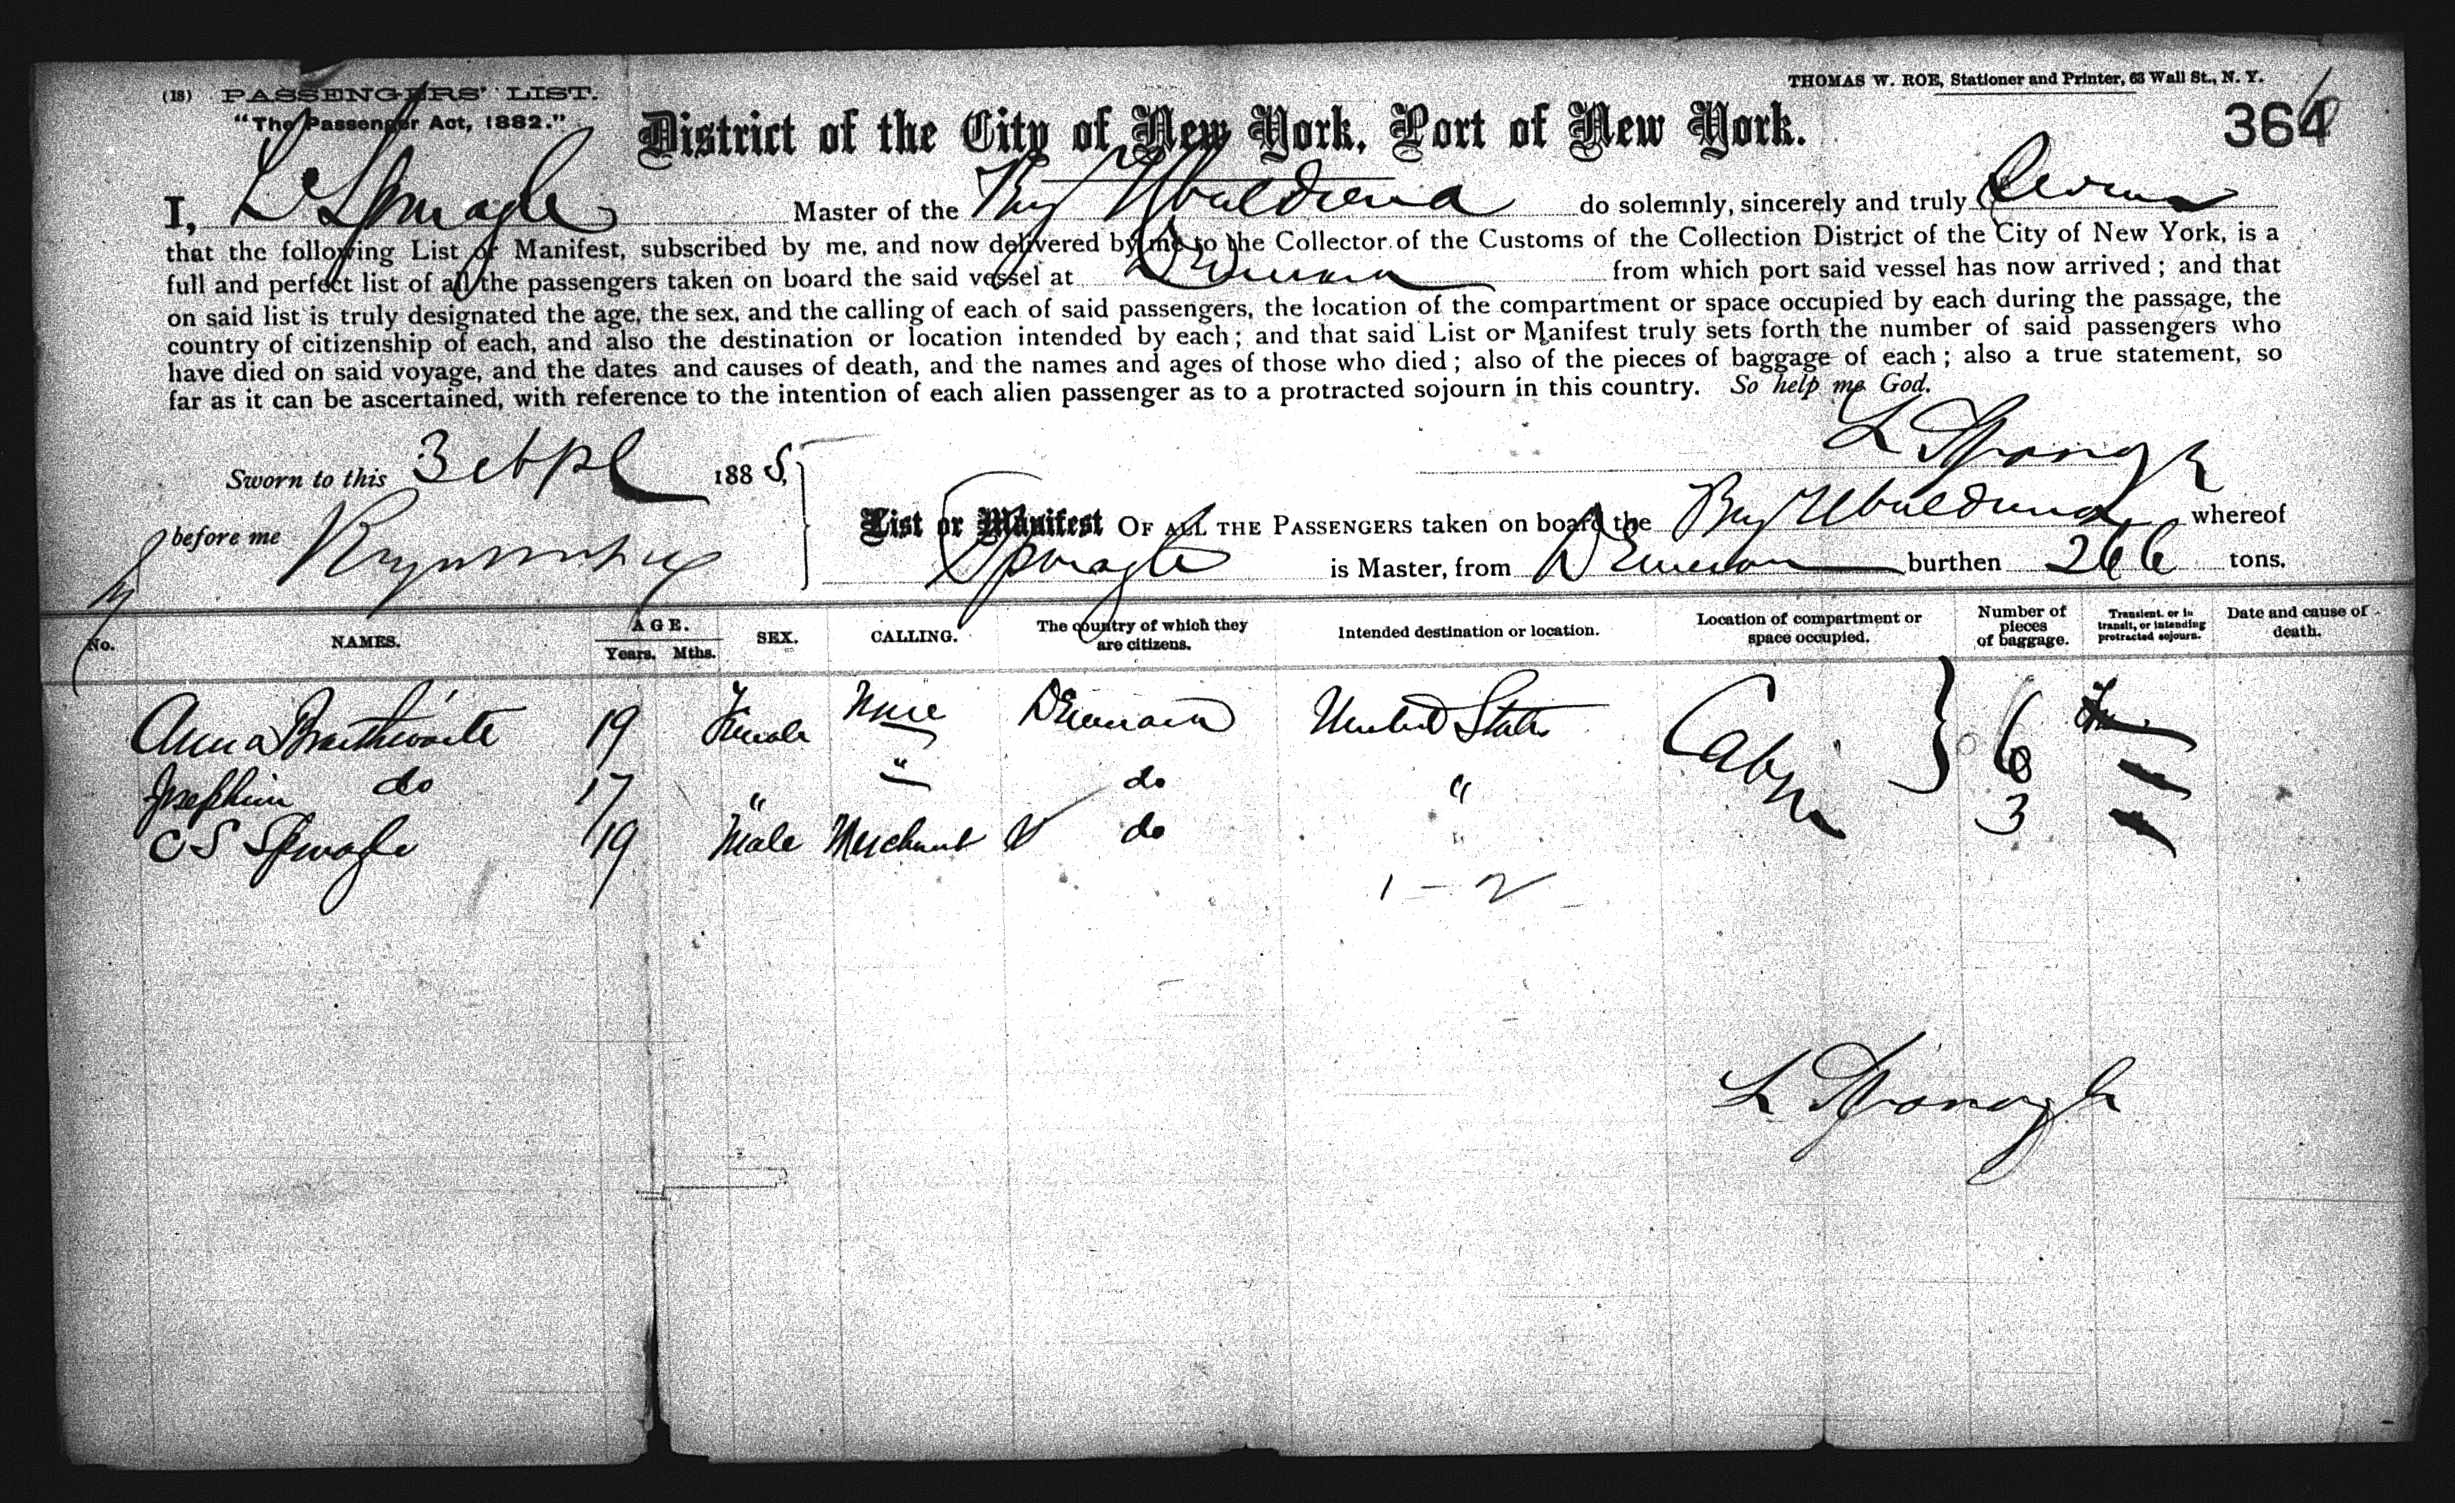 (18) PASSENGERS' LIST.
"The Passenger Act, 1882."
THOMAS W. ROE, Stationer and Printer, 63 Wall St., N. Y.
364
District of the City of New York, Port of New York.
I, L Spragle Master of the do solemnly, sincerely and truly
that the following List or Manifest, subscribed by me, and now delivered by me to the Collector of the Customs of the Collection District of the City of New York, is a
full and perfect list of all the passengers taken on board the said vessel at from which port said vessel has now arrived; and that
on said list is truly designated the age, the sex, and the calling of each of said passengers, the location of the compartment or space occupied by each during the passage, the
country of citizenship of each, and also the destination or location intended by each; and that said List or Manifest truly sets forth the number of said passengers who
have died on said voyage, and the dates and causes of death, and the names and ages of those who died; also of the pieces of baggage of each; also a true statement, so
far as it can be ascertained, with reference to the intention of each alien passenger as to a protracted sojourn in this country. So help me God.
Sworn to this 3 Apl 1885,
before me
List or Manifest OF ALL THE PASSENGERS taken on board the whereof
Spragle is Master, from burthen 266 tons.
No. NAMES. AGE. Years. Mths. SEX. CALLING. The country of which they are citizens. Intended destination or location. Location of compartment or space occupied. Number of pieces of baggage. Transient, or in transit, or intending protracted sojourn. Date and cause of death.
Anna Braithwaite 19 Female None United States Cabin 6
Josephine do 17 " " do "
C S Spragle 19 Male Merchant do " 3
1 - 2